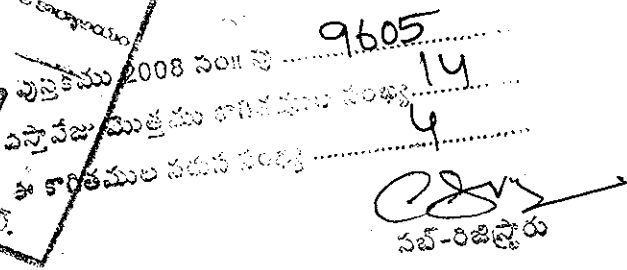 పుస్తకము 2008 సం॥ పు ........ 9605 ........
దస్తావేజు మొత్తము కాగితముల సంఖ్య 14 ........
ఈ కాగితముల వరుస సంఖ్య ........ 4 ........
సబ్-రిజిస్ట్రారు